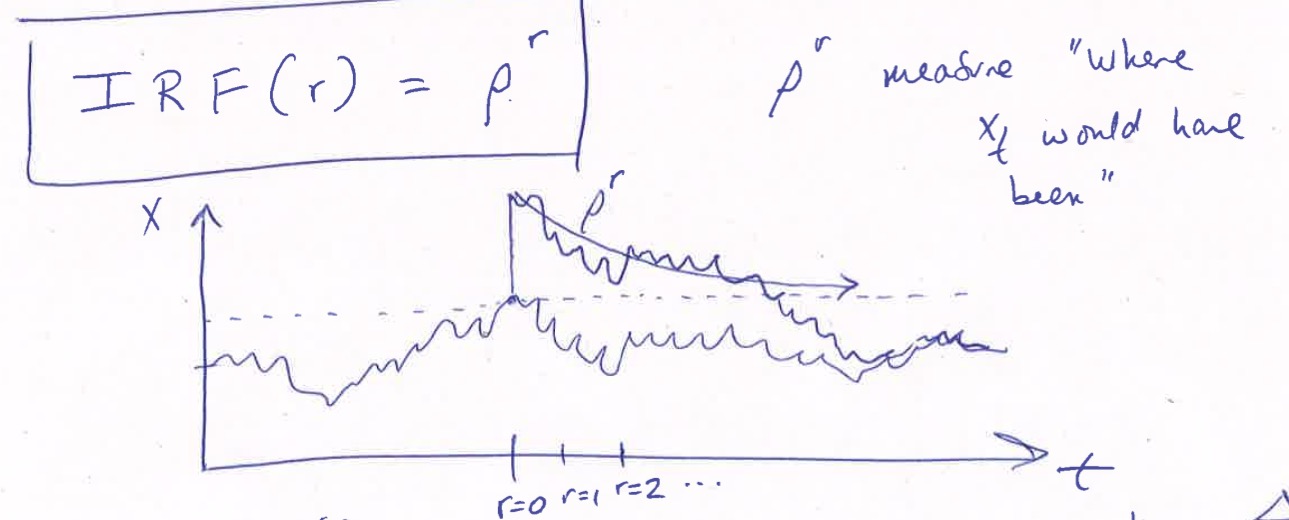 IRF(r) = ρ^r
ρ^r measure "where
x_t would have
been"
X
ρ^r
t
r=0 r=1 r=2 ...